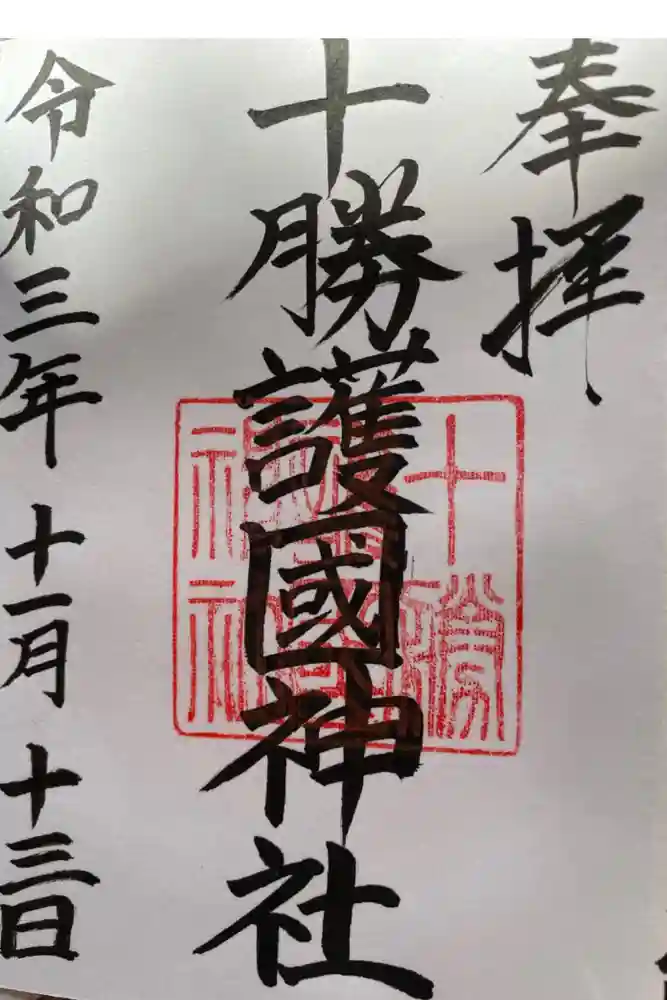 奉拝
十勝護國神社
令和三年十一月十三日
十勝
護國
神社